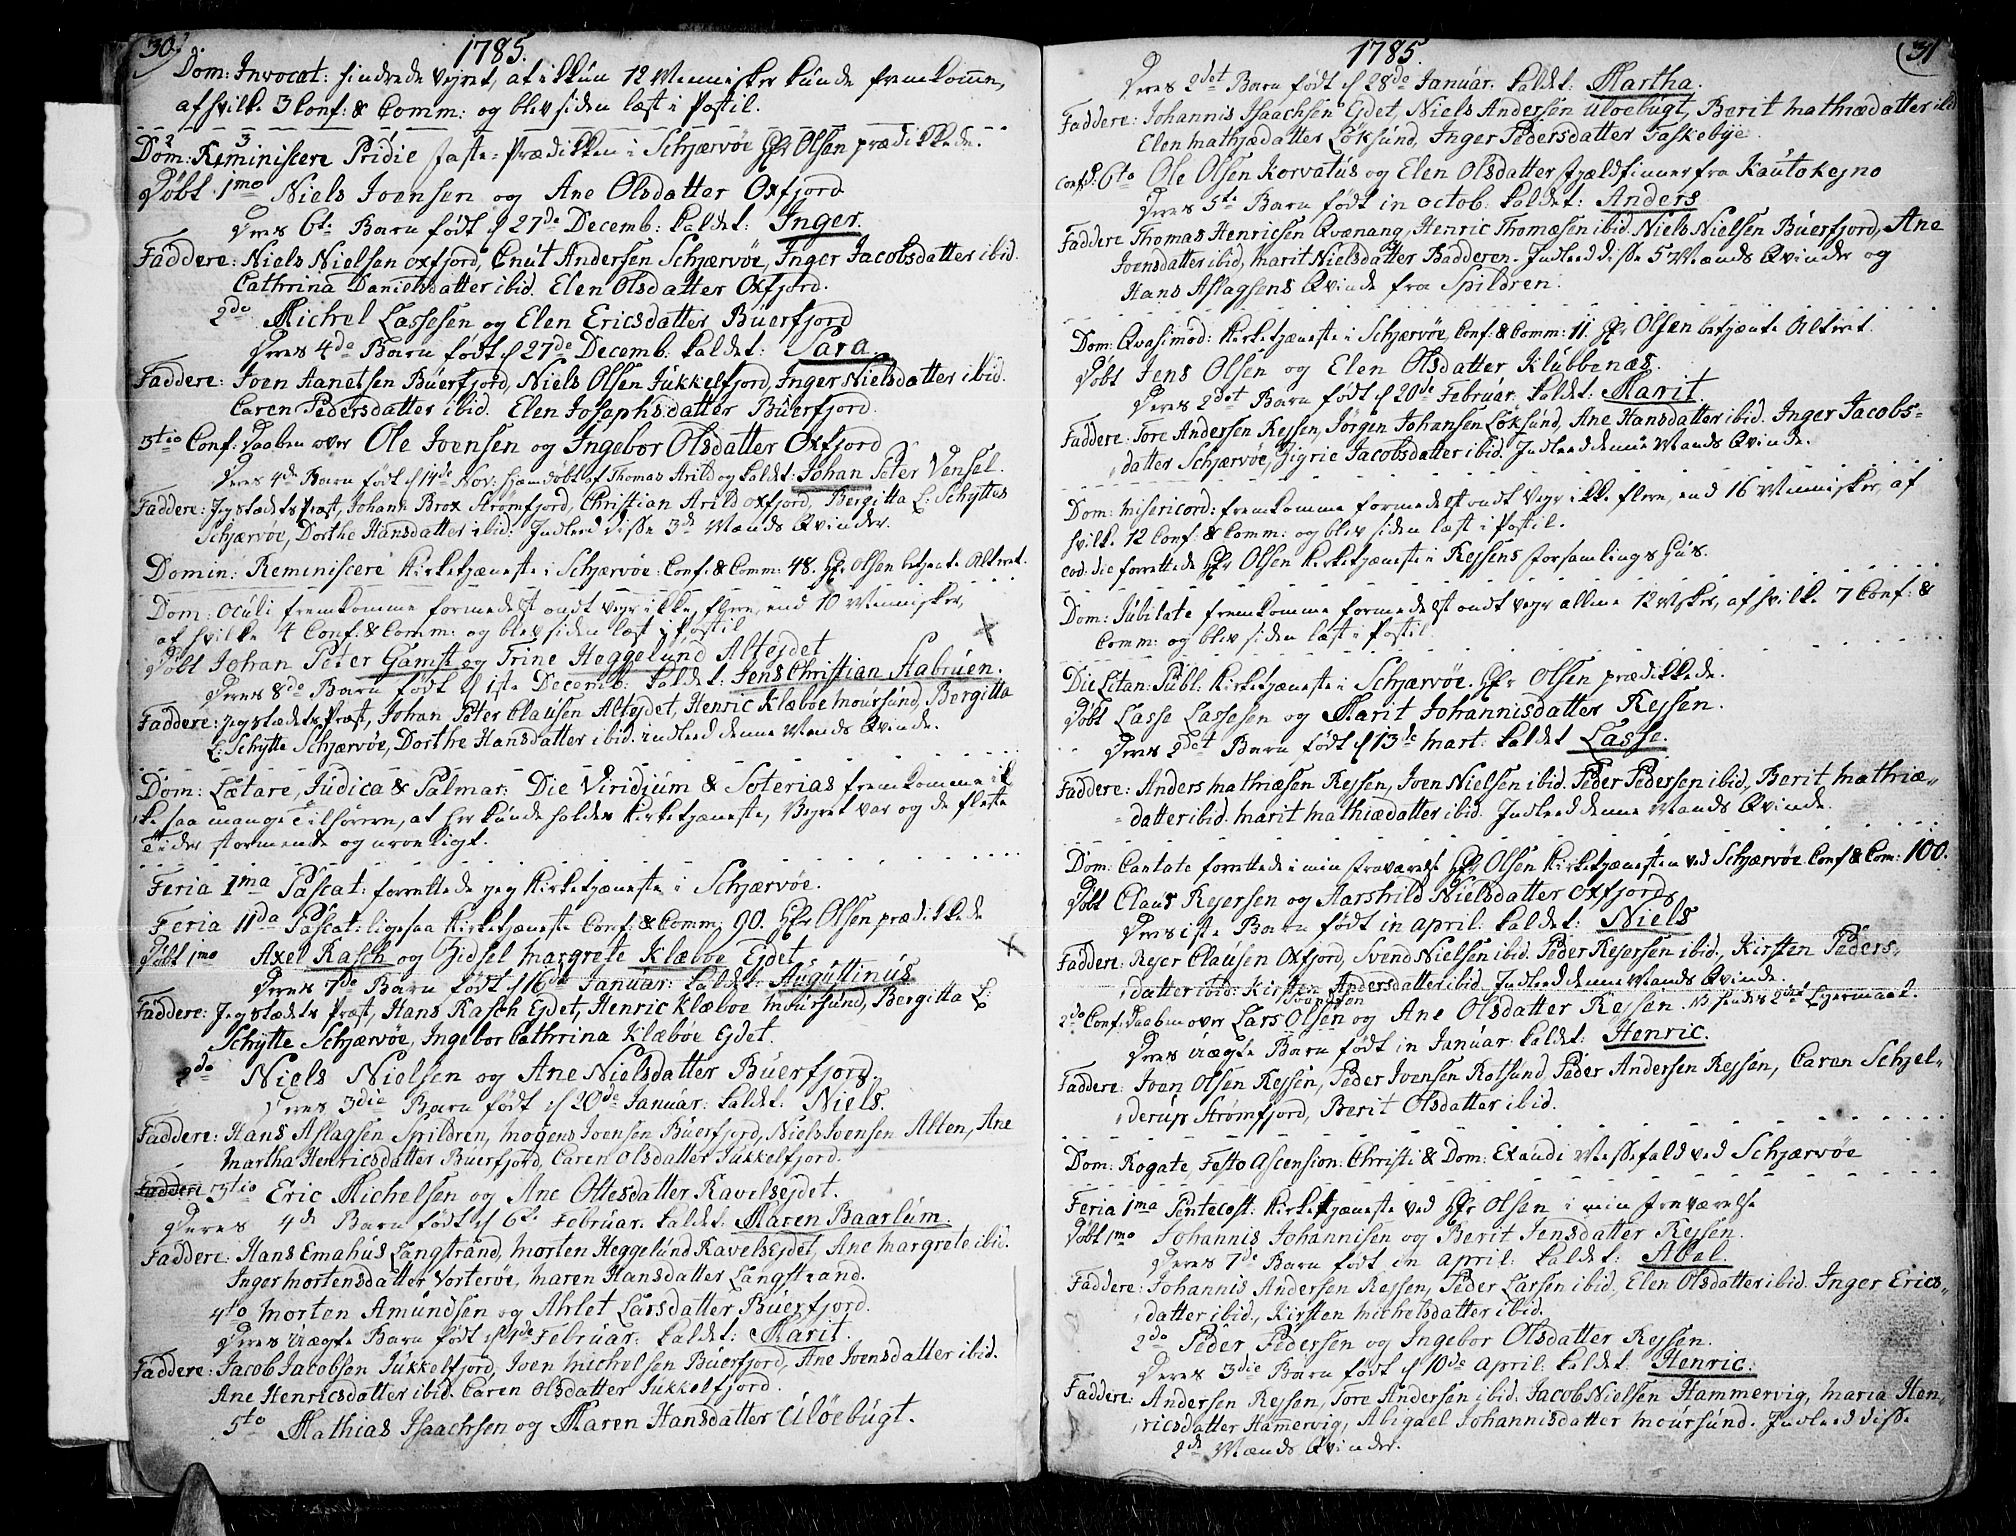 30.
1785.
Dom: Invocat: hindrede Vejret, at ikkun 12 Mennisker kunde fremkomme,
af hvilke 3 Conf: & Comm: og blev siden læst i Postil.
Dom: Reminiscere Pridie faste-Prædikken i Schjærvøe Hr Olsen prædikkede.
Døbt 1mo Niels Joensen og Ane Olsdatter Oxfjord
Deres 6te Barn født d 27de Decemb: kaldet: Inger.
Faddere: Niels Nielsen Oxfjord, Cnut Andersen Schjærvøe, Inger Jacobsdatter ibid.
Cathrina Danielsdatter ibid. Elen Olsdatter Oxfjord.
2do Michel Lassesen og Elen Ericsdatter Buerfjord
Deres 4de Barn født d 27de Decemb. kaldet: Sara.
Faddere: Joen Aanetsen Buerfjord, Niels Olsen Jukkelfjord, Inger Nielsdatter ibid.
Caren Pedersdatter ibid. Elen Josephsdatter Buerfjord.
3tio Conf: Daaben over Ole Joensen og Ingebor Olsdatter Oxfjord
Deres 4de Barn født d 14de Nov: hjemdøbt af Thomas Arild og kaldet: Johan Peter Vensel.
Faddere: Jeg stædets Præst, Johan Brox Strømfjord, Christian Arild Oxfjord, Bergitta L: Schyttes
Schjærvøe, Dorthe Hansdatter ibid: Indleed disse 3de Mænds Qvinder.
Domin: Reminiscere Kirketjæneste i Schjærvøe. Conf: & Comm: 48. Hr Olsen betjente Alteret.
Dom: Oculi fremkomme formedelst ondt Veyr ikke flere, end 10 Mennisker,
af hvilke 4 Conf: & Comm: og blev siden læst i Postil
Døbt Johan Peter Gamst og Trine Heggelund Altejdet
Deres 8de Barn født d 1ste Decemb: kaldet: Jens Christian Stabruen.
Faddere: Jeg stædets Præst, Johan Peter Clausen Altejdet, Henric Klæboe Moursund, Bergitta
L: Schytte Schjærvøe, Dorthe Hansdatter ibid. indleed denne Mands Qvinde.
Dom: Lætare, Judica & Palmar: Die Viridium & Soterias fremkomme ik
ke saa mange Tilhørere, at her kunde holdes Kirketjæneste, Vejret var og de fleste
Tider stormende og uroeligt.
Feria 1ma Pascat: forrettede jeg Kirketjæneste i Schjærvøe.
Feria 11da Pascat: ligesaa Kirketjæneste Conf: & Comm: 90. Hr Olsen prædikkede
Døbt 1mo Axel Rasch og Zidsel Margrete Klæboe Ejdet
Deres 7de Barn født d 16de Januar: kaldet: Augustinus
Faddere: Jeg stædets Præst, Hans Rasch Ejdet, Henric Klæboe Moursund, Bergitta L:
Schytte Schjærvøe, Ingebor Cathrina Klæbøe Ejdet.
2do Niels Nielsen og Ane Nielsdatter Buerfjord.
Deres 3die Barn født d 20de Januar: kaldet. Niels.
Faddere: Hans Aslagsen Spildren, Mogens Joensen Buerfjord, Niels Joensen Alten, Ane
Martha Henricsdatter Buerfjord, Caren Olsdatter Jukkelfjord.
Faddere 3tio Eric Michelsen og Ane Ottesdatter Ravelsejdet.
Deres 4de Barn født d 6te Februar. kaldet: Maren Baarlum
Faddere: Hans Emahus Langstrand, Morten Heggelund Ravelsejdet, Ane Margrete ibid.
Inger Mortensdatter Vorterøe, Maren Hansdatter Langstrand.
4to Morten Amundsen og Ahlet Larsdatter Buerfjord.
Deres uægte Barn født d 4de Februar: kaldet: Marit.
Faddere: Jacob Jacobsen Jukkelfjord, Joen Michelsen Buerfjord, Ane Joensdatter ibid.
Ane Henricsdatter ibid. Caren Olsdatter Jukkelfjord.
5to Mathias Isaachsen og Maren Hansdatter Uløebugt.
31
1785.
Deres 2det Barn født d 28de Januar. kaldet: Martha.
Faddere: Johannis Isaachsen Ejdet, Niels Andersen Uloebugt, Berit Mathiædatter ibid
Elen Mathjædatter Løksund, Inger Pedersdatter Taskebye.
Conf: D: 6to Ole Olsen Korvatus og Elen Olsdatter Fjældfinner fra Kautokejno
Deres 5te Barn født in Octob. kaldet: Anders
Faddere Thomas Henricsen Qvænang, Henric Thomæsen ibid. Niels Nielsen Buerfjord, Ane
Joensdatter ibid, Marit Nielsdatter Badderen. Indleed disse 5 Mænds Qvinder og
Hans Aslagsens Qvinde fra Spildren.
Dom: Qvasimod: Kirketjæneste i Schjærvøe, Conf: & Comm: 11. Hr Olsen betjente Alteret.
Døbt Jens Olsen og Elen Olsdatter Klubbenæs.
Deres 2det Barn født d 20de Februar: kaldet: Marit.
Faddere: Tore Andersen Rejsen, Jørgen Johansen Løksund, Ane Hansdatter ibid. Inger Jacobs-
datter Schjærvøe, Zigrie Jacobsdatter ibid. Indleed denne Mands Qvinde.
Dom: Misericord: fremkomme formedelst ondt Vejr ikke flere, end 16 Mennisker, af
hvilke 12 Conf: & Comm: og blev siden læst i Postil.
eod: die forrettede Hr Olsen Kirketjæneste i Rejsens Forsamlings Huus.
Dom: Jubilate fremkomme formedelst ondt Vejr allene 12 Msker, af hvilke 7 Conf: &
Comm: og blev siden læst i Postil.
Die Litan: Publ: Kirketjæneste i Schjærvøe. Hr Olsen prædikkede.
Døbt Lasse Lassesen og Marit Johannisdatter Rejsen.
Deres 2det Barn født d 13de Mart: kaldet Lasse.
Faddere: Anders Mathiæsen Rejsen, Joen Nielsen ibid. Peder Pedersen ibid, Berit Mathiæ-
datter ibid. Marit Mathiædatter ibid. Indleed denne Mands Qvinde.
Dom: Cantate forrettede i min Fraværelse Hr Olsen Kirketjænesten ved Schjærvøe Conf & Com: 100.
Døbt Claus Rejersen og Aarshild Nielsdatter Oxfjord
Deres 1ste Barn født in April. kaldet: Niels
Faddere: Rejer Clausen Oxfjord, Svend Nielsen ibid. Peder Rejersen ibid., Kirsten Peders-
datter ibid: Kirsten Andersdatter ibid. Indleed denne Mands Qvinde.
2do Conf: Daaben over Lars Olsen og Ane Olsdatter Rejsen. NB hendes 2det Lejermaal.
Deres uægte Barn født in Januar: kaldet: Henric.
Faddere: Joen Olsen Rejsen, Peder Joensen Rotsund Peder Andersen Rejsen, Caren Schjel-
derup Strømfjord, Berit Olsdatter ibid.
Dom: Rogate Festo Ascension: Christi & Dom: Exaudi Messefald ved Schjærvøe
Feria 1ma Pentecost: Kirketjæneste ved Hr Olsen i min Fraværelse
Døbt 1mo Johannis Johannisen og Berit Jensdatter Rejsen.
Deres 7de Barn født in April: kaldet: Abel.
Faddere: Johannis Andersen Rejsen, Peder Larsen ibid. Elen Olsdatter ibid. Inger Erics-
datter ibid., Kirsten Michelsdatter ibid.
2do Peder Pedersen og Ingebor Olsdatter Rejsen.
Deres 3die Barn født d 10de April. kaldet: Henric:
Faddere: Andersen Rejsen, Tore Andersen ibid. Jacob Nielsen Hammervig, Maria Hen-
ricsdatter Hamervig, Abigael Johannisdatter Moursund. Indleed disse
2de Mænds Qvinder.